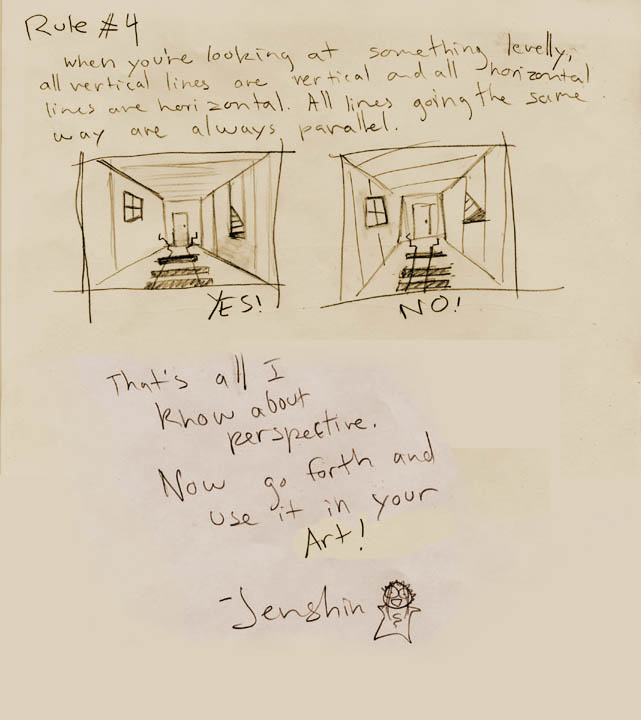 Rule #4
when you're looking at something levelly,
all vertical lines are vertical and all horizontal
lines are horizontal. All lines going the same
way are always parallel.
YES!
NO!
That's all I
know about
perspective.
Now go forth and
use it in your
Art!
-Jenshin